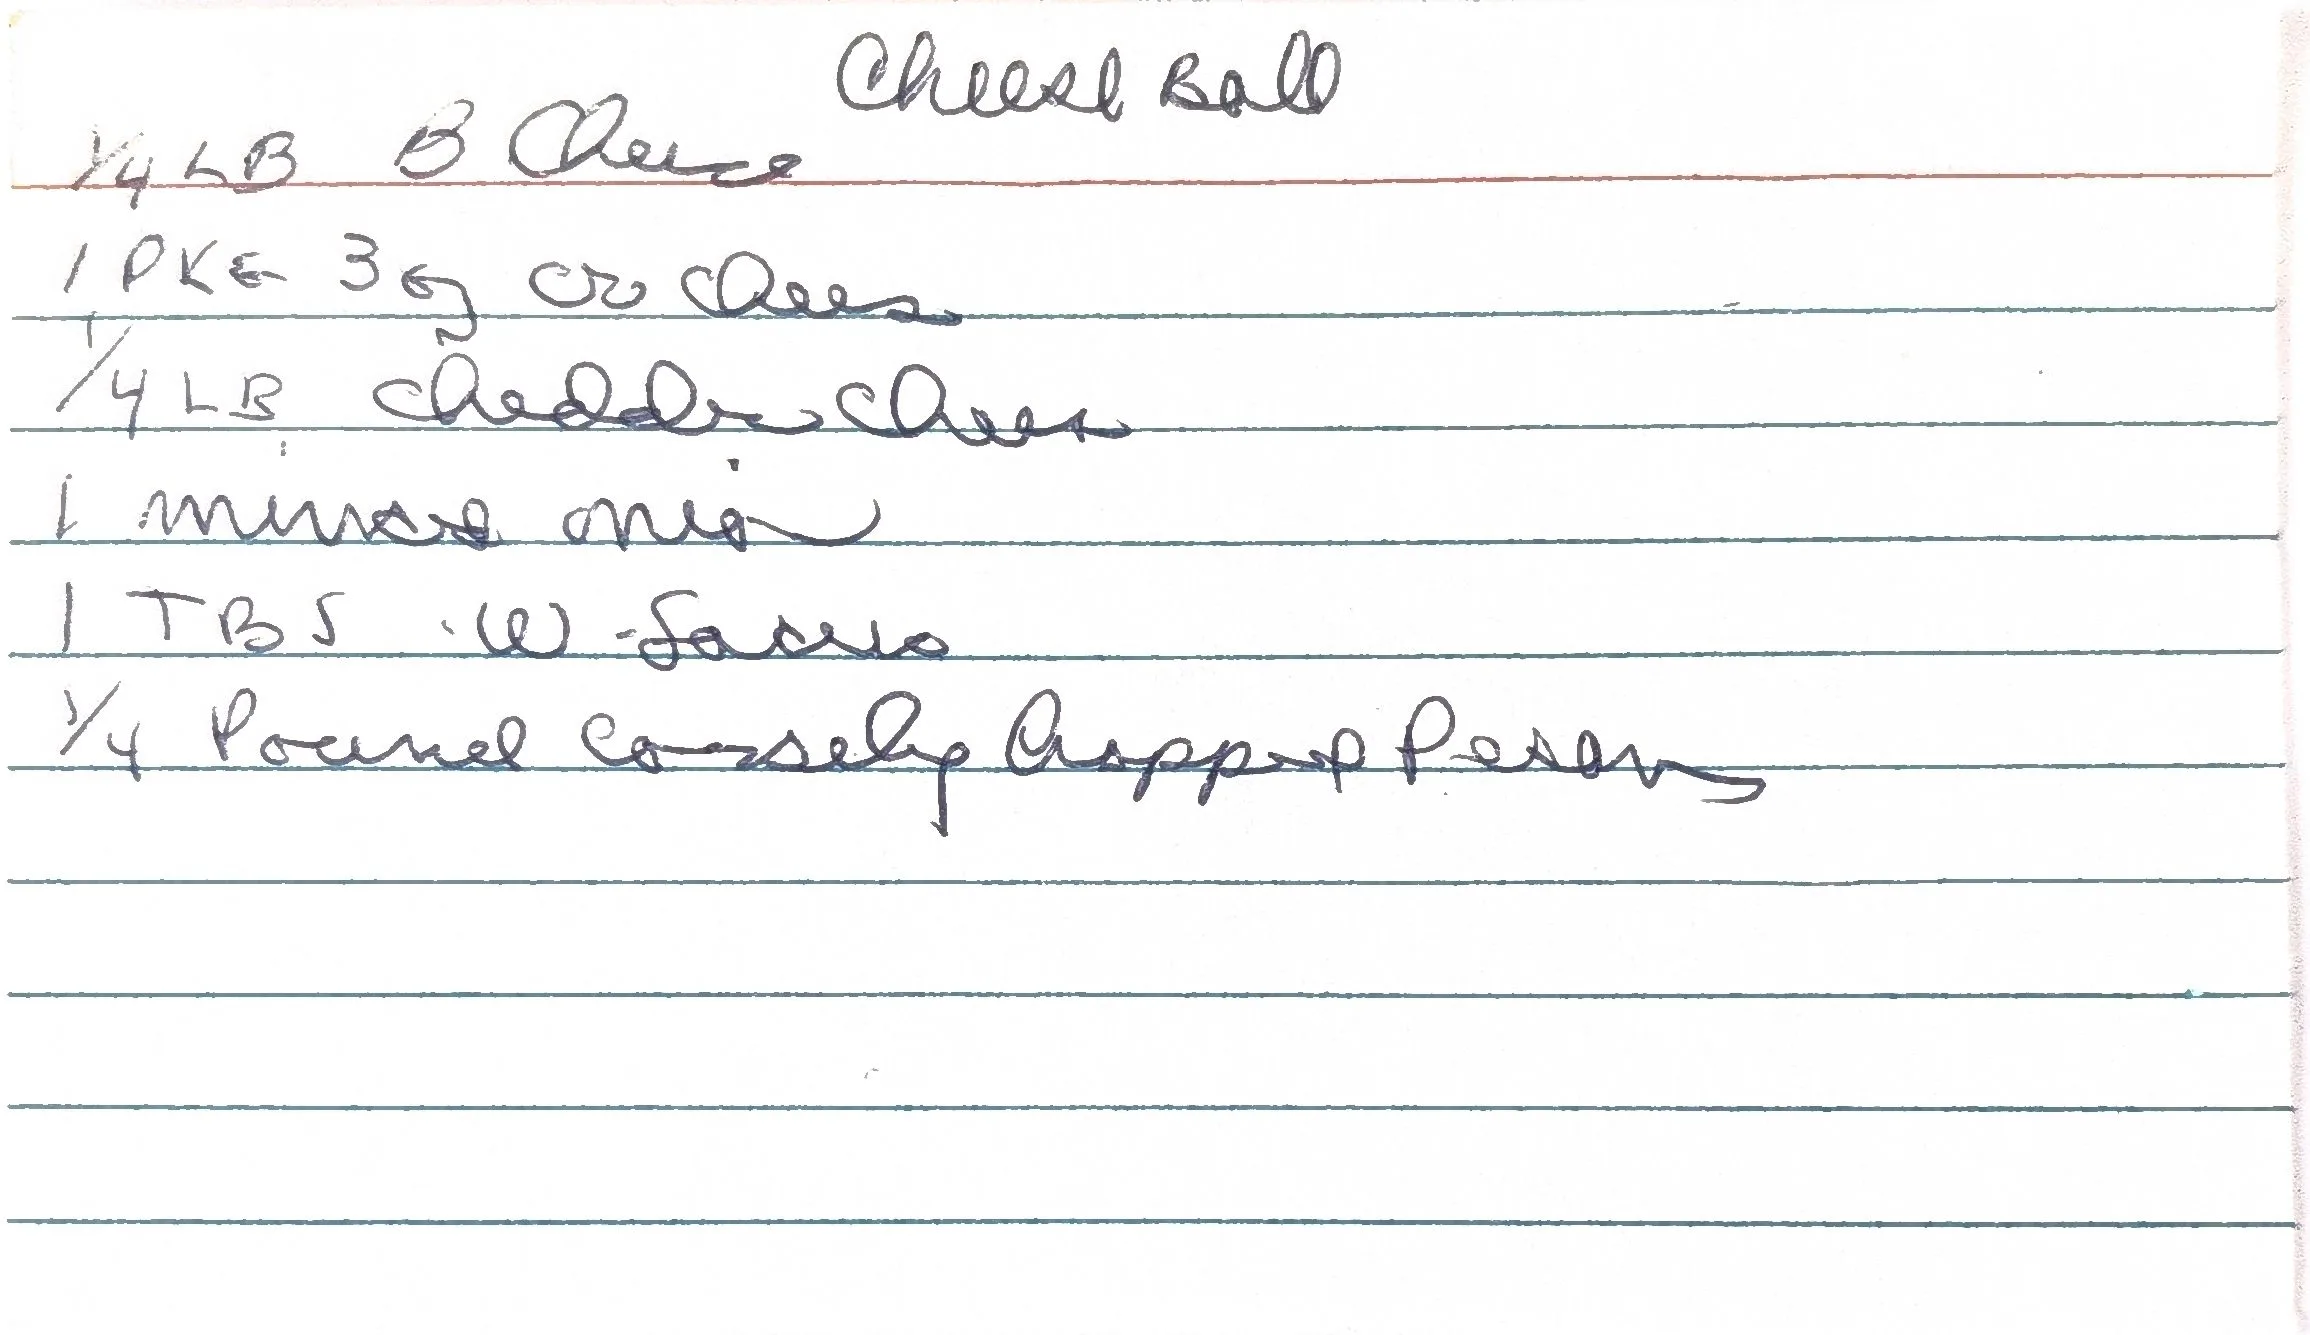 Cheese Ball
1/4 LB B Cheese
1 PKG 3 oz cr chees
1/4 LB cheddar chees
1 mince onion
1 TBS W-Sauce
1/4 Pound coarsely chopped Pecans